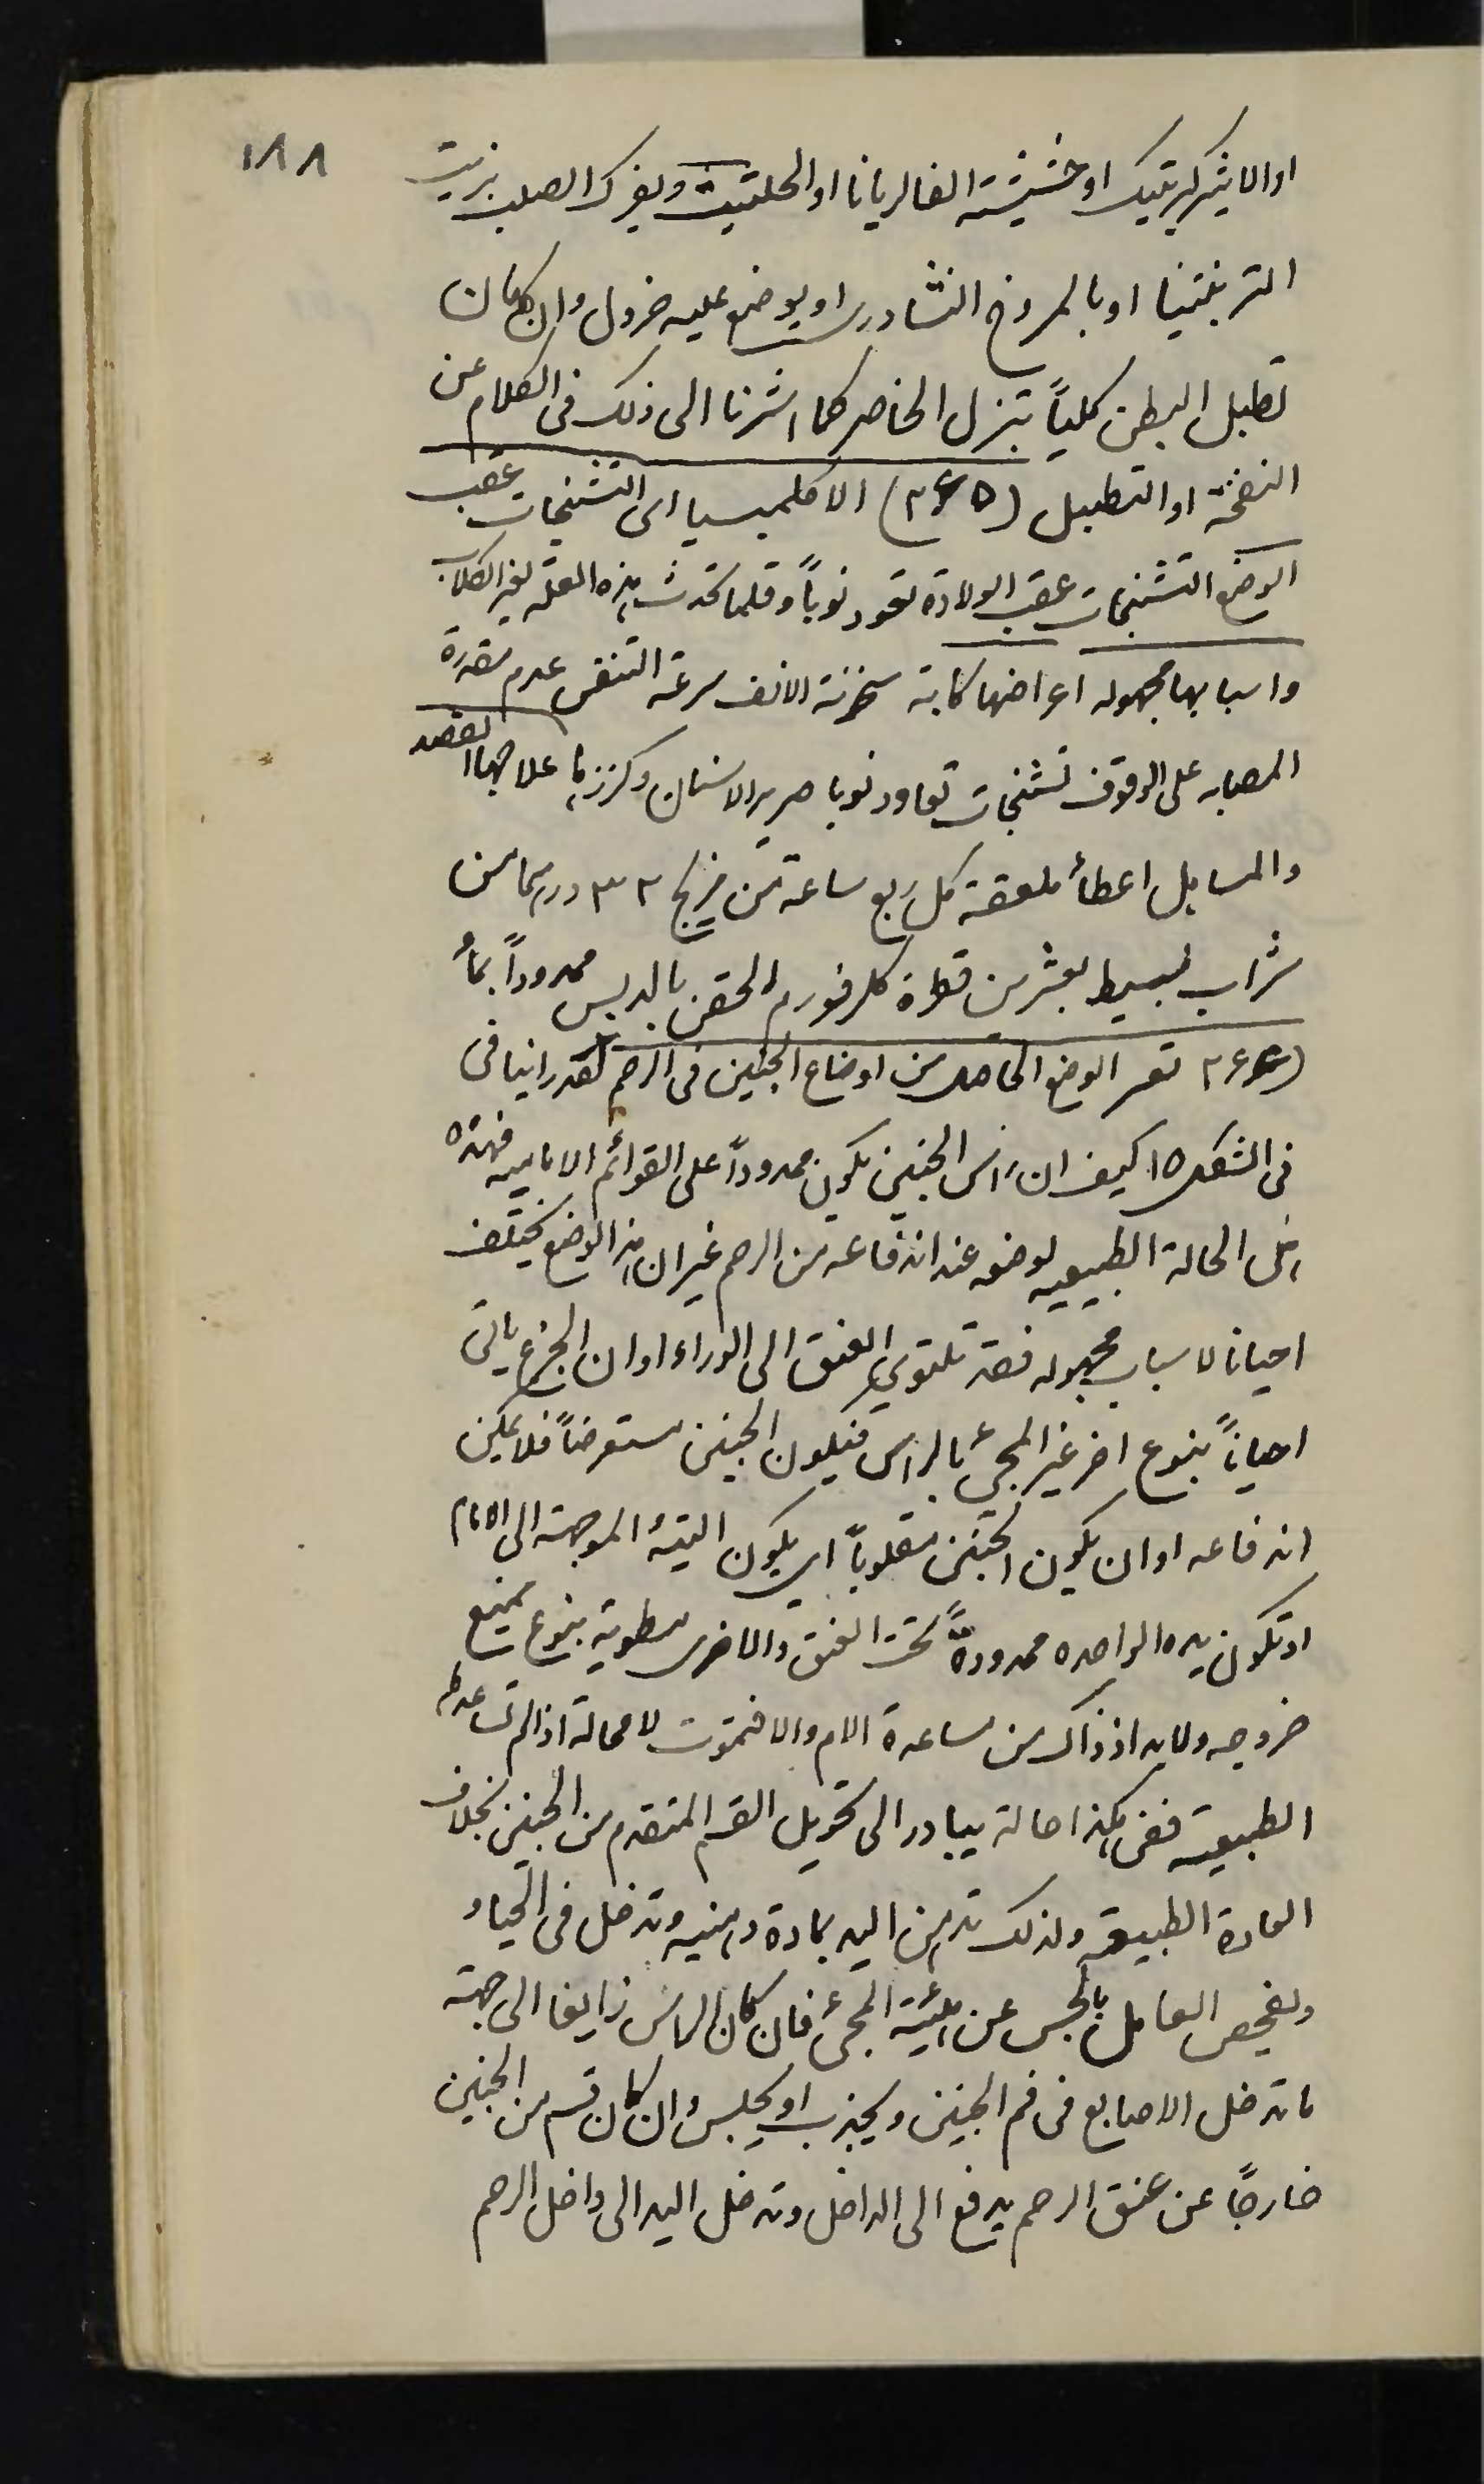 ١٨٨
او الايثير كبريتيك او حشيشة الفاليريانا او الحلتيت ويفرك الصلب بزيت
التربنتينا او بالمروخ النشادري او يوضع عليه خردل وان كان
تطبل البطن كلياً تبزل الخاصر كما اشرنا الى ذلك فى الكلام عن
النفخة او التطبيل (٢٦٥) الاكلمبسيا اى التشنجات عقب
الوضع التشنجات عقب الولادة تعود نوباً وقلما تحدث هذه العله لغير الكلاب
واسبابها مجهوله اعراضها كابة سخونة الانف سرعة التنفس عدم مقدرة
المصابه على الوقوف تشنجات تعاود نوبا صرير الاسنان وكززها علاجها الفصد
والمسايل اعطاء ملعقة كل ربع ساعة من مزيج ٣٢ درهما من
شراب بسيط بعشرين قطرة كلرفورم الحقن بالدبس ممدوداً بماء
(٢٦٦ تعسر الوضع الحاصل من اوضاع الجنين فى الرحم لقد راينا فى
فى الشكل ١٥ كيف ان راس الجنين يكون ممدوداً على القوائم الاماميه فهذه
هى الحالة الطبيعيه لوضعه عند اندفاعه من الرحم غير ان هذا الوضع يختلف
احيانا لاسباب مجهوله فقد تلتوي العنق الى الوراء او ان الجذع ياتى
احياناً بنوع اخر غير المجئ بالراس فيكون الجنين مستعرضاً فلا يمكن
اندفاعه او ان يكون الجنين مقلوباً اى يكون اليتئ الموجهة الى الامام
او تكون يده الواحده ممدودةً تحت العنق والاخرى مطوية بنوع يمنع
خروجه ولابد اذ ذاك من مساعدة الام والا فتموت لا محالة اذا لم تساعدها
الطبيعة ففى هكذا حالة يبادر الى تحويل القسم المتقدم من الجنين بخلاف
العادة الطبيعية ولذلك تدهن اليد بمادة دهنيه وتدخل فى الحياء
ويفحص العامل بالجس عن هيئة المجئ فان كان الراس زايغا الى جهة
ما تدخل الاصابع فى فم الجنين ويجذب او يجلس وان كان قسم من الجنين
خارجاً عن عنق الرحم يدفع الى الداخل وتدخل اليد الى داخل الرحم